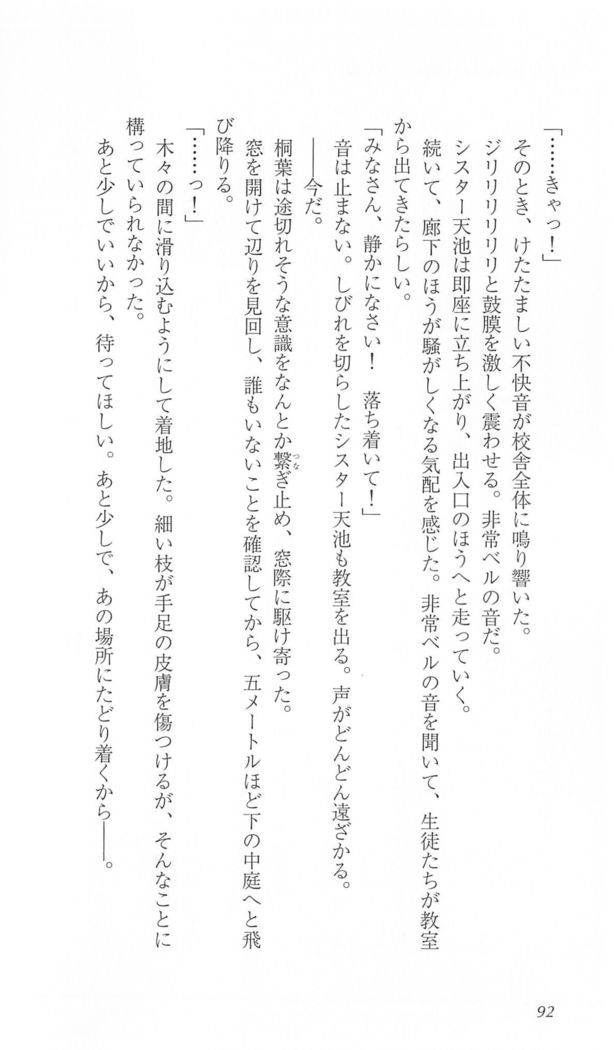 「……きゃっ！」
そのとき、けたたましい不快音が校舎全体に鳴り響いた。
ジリリリリリリと鼓膜を激しく震わせる。非常ベルの音だ。
シスター天池は即座に立ち上がり、出入口のほうへと走っていく。
続いて、廊下のほうが騒がしくなる気配を感じた。非常ベルの音を聞いて、生徒たちが教室
から出てきたらしい。
「みなさん、静かになさい！　落ち着いて！」
音は止まない。しびれを切らしたシスター天池も教室を出る。声がどんどん遠ざかる。
――今だ。
桐葉は途切れそうな意識をなんとか繋ぎ止め、窓際に駆け寄った。
つな
窓を開けて辺りを見回し、誰もいないことを確認してから、五メートルほど下の中庭へと飛
び降りる。
「……っ！」
木々の間に滑り込むようにして着地した。細い枝が手足の皮膚を傷つけるが、そんなことに
構っていられなかった。
あと少しでいいから、待ってほしい。あと少しで、あの場所にたどり着くから――。
92